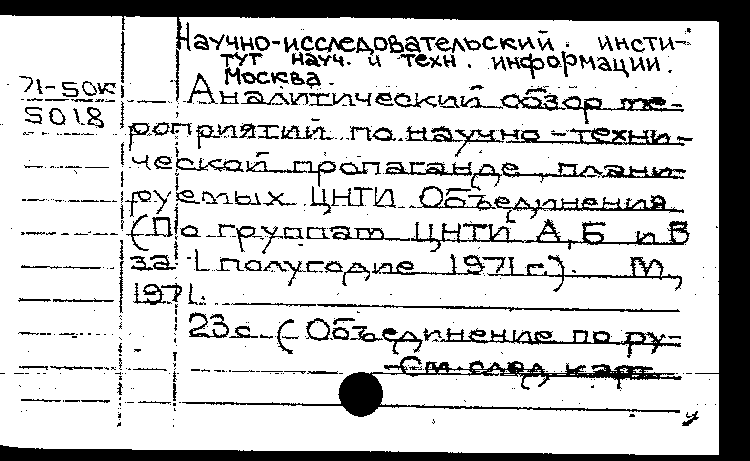 Научно-исследовательский. инсти-
тут науч. и техн. информации.
Москва.
71-50К
5018
Аналитический обзор ме-
роприятий по научно-техни-
ческой пропаганде, плани-
руемых ЦНТИ Объединения
(По группам ЦНТИ А, Б и В
за I полугодие 1971 г.). М.,
1971.
23 с. (Объединение по ру-
См. след. карт